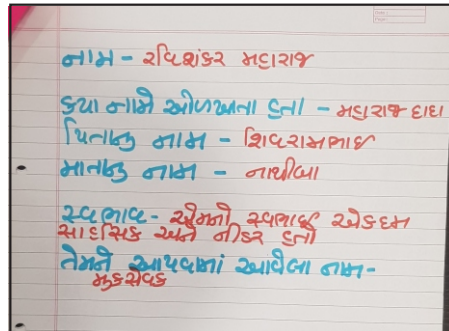 નામ - રવિશંકર મહારાજ
કયા નામે ઓળખાતા હતા - મહારાજ દાદા
પિતાનુ નામ - શિવરામભાઇ
માતાનુ નામ - નાથીબા
સ્વભાવ - એમનો સ્વભાવ એકદમ
સાહસિક અને નીડર હતો
તેમને આપવામાં આવેલા નામ-
મુકસેવક